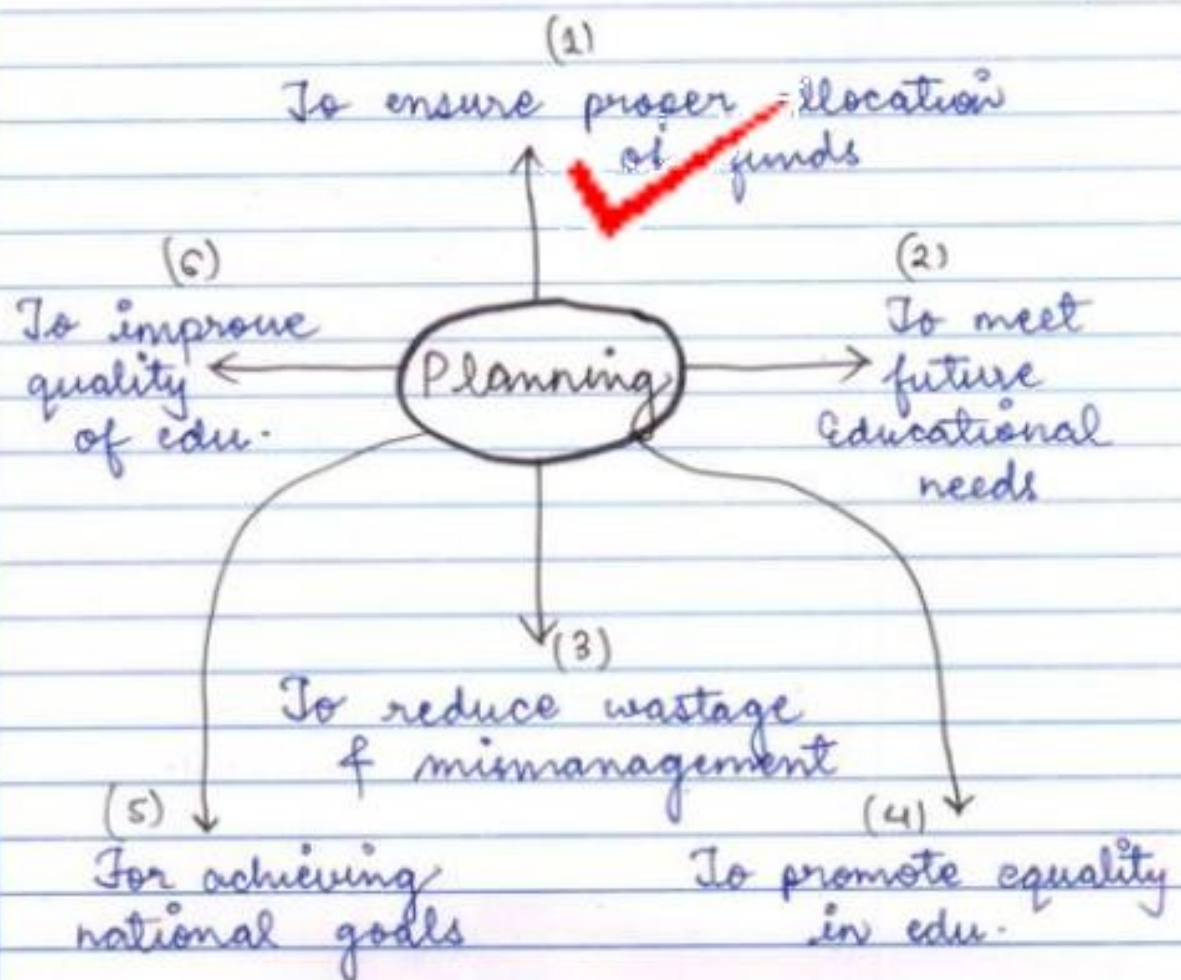 (1)
To ensure proper allocation
of funds
(6)
To improve
quality
of edu.
Planning
(2)
To meet
future
Educational
needs
(3)
To reduce wastage
& mismanagement
(5)
For achieving
national goals
(4)
To promote equality
in edu.